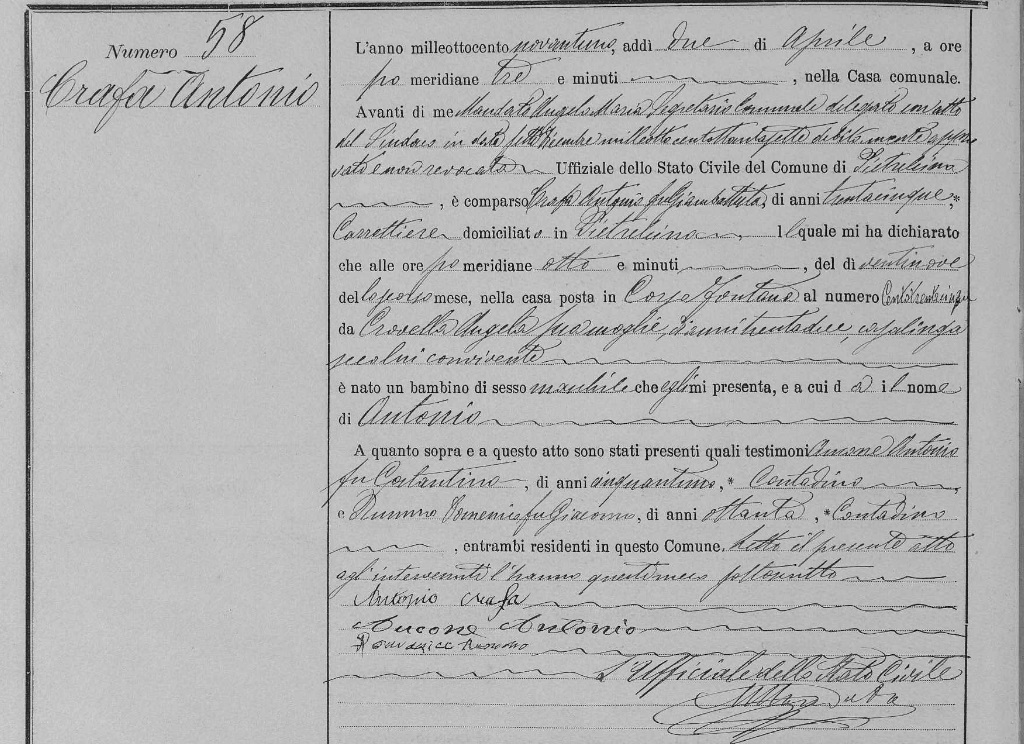 Numero 58
Crafa Antonio
L'anno milleottocento novantuno, addì due di Aprile, a ore
po meridiane tre e minuti , nella Casa comunale.
Avanti di me Mandato Angelo Maria Segretario Comunale delegato con atto
del Sindaco in data sette Dicembre milleottocentottantasette debitamente appro
vato e non revocato Uffiziale dello Stato Civile del Comune di Pietrelcina
, è comparso Crafa Antonio fu Giambattista, di anni trentacinque,*
Carrettiere domiciliato in Pietrelcina, Il quale mi ha dichiarato
che alle ore po meridiane otto e minuti , del dì ventinove
del mese, nella casa posta in Corso Fontana al numero Centotrentacinque
da Crovella Angela sua moglie, di anni trentadue, casalinga
seco lui convivente
è nato un bambino di sesso maschile che egli mi presenta, e a cui dà il nome
di Antonio
A quanto sopra e a questo atto sono stati presenti quali testimoni Aucone Antonio
fu Costantino, di anni cinquantuno,* Contadino,
e Rummo Domenico fu Giacomo, di anni ottanta,* Contadino
, entrambi residenti in questo Comune. Letto il presente atto
agli intervenuti l'hanno questi meco sottoscritto
Antonio Crafa
Aucone Antonio
Domenico Rummo
L'Ufficiale dello Stato Civile
Mandato